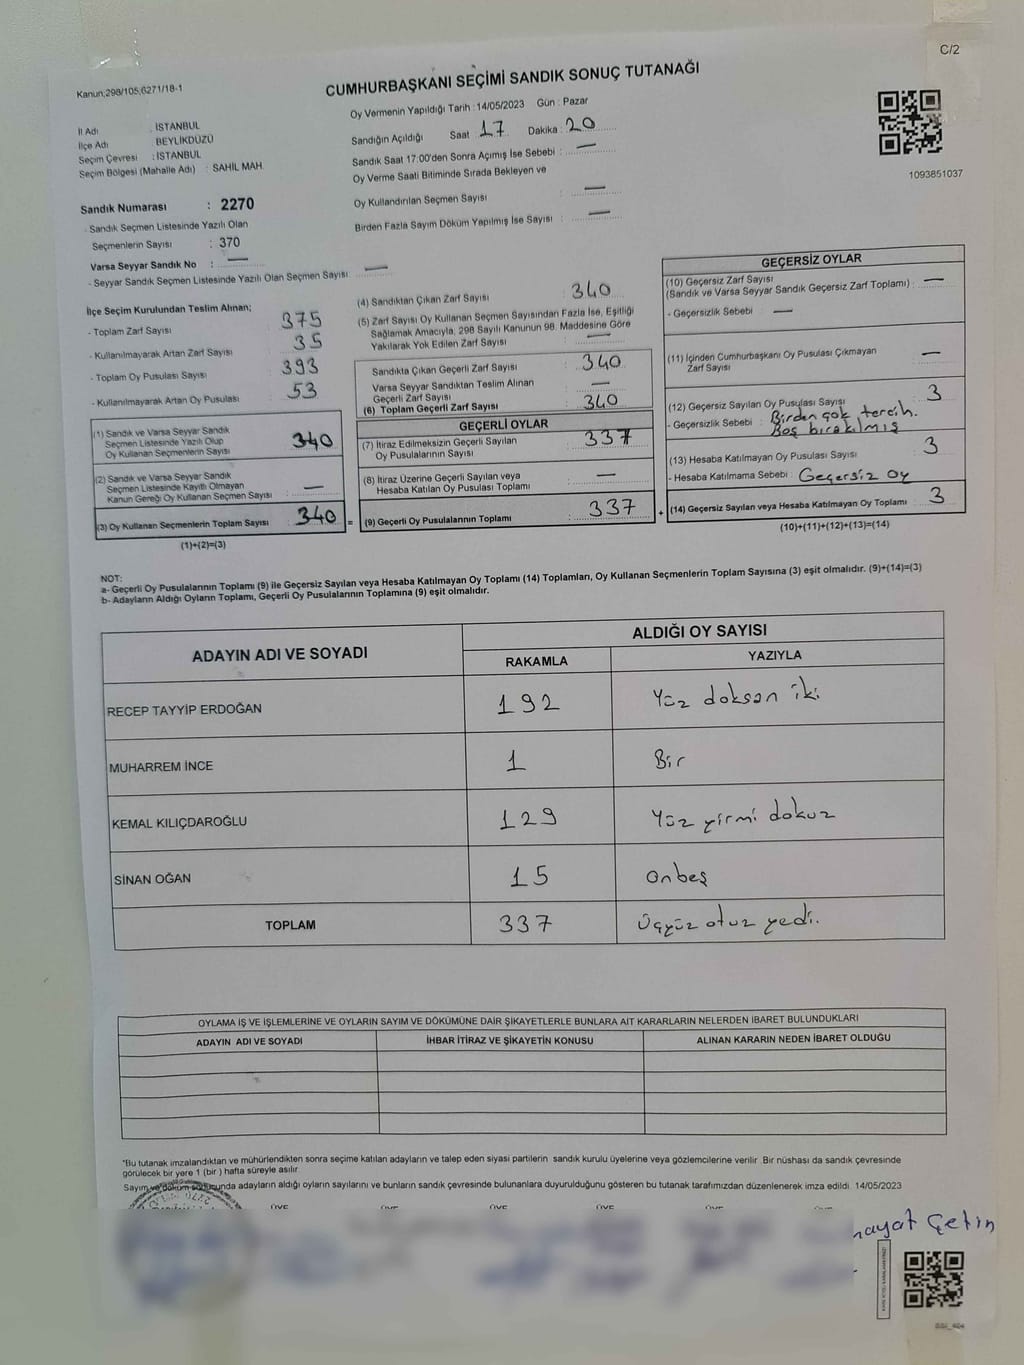 C/2
Kanun;298/105;6271/18-1
CUMHURBAŞKANI SEÇİMİ SANDIK SONUÇ TUTANAĞI
Oy Vermenin Yapıldığı Tarih :14/05/2023 Gün : Pazar
İl Adı : İSTANBUL
İlçe Adı : BEYLİKDÜZÜ
Seçim Çevresi : İSTANBUL
Seçim Bölgesi (Mahalle Adı) : SAHİL MAH.
Sandığın Açıldığı Saat 17 Dakika : 20
Sandık Saat 17:00'den Sonra Açımış İse Sebebi : —
Oy Verme Saati Bitiminde Sırada Bekleyen ve
Oy Kullandırılan Seçmen Sayısı : —
Birden Fazla Sayım Döküm Yapılmış İse Sayısı : —
1093851037
Sandık Numarası : 2270
- Sandık Seçmen Listesinde Yazılı Olan
Seçmenlerin Sayısı : 370
Varsa Seyyar Sandık No : —
- Seyyar Sandık Seçmen Listesinde Yazılı Olan Seçmen Sayısı : —
İlçe Seçim Kurulundan Teslim Alınan;
- Toplam Zarf Sayısı 375
- Kullanılmayarak Artan Zarf Sayısı 35
- Toplam Oy Pusulası Sayısı 393
- Kullanılmayarak Artan Oy Pusulası 53
(1) Sandık ve Varsa Seyyar Sandık
Seçmen Listesinde Yazılı Olup
Oy Kullanan Seçmenlerin Sayısı 340
(2) Sandık ve Varsa Seyyar Sandık
Seçmen Listesinde Kayıtlı Olmayan
Kanun Gereği Oy Kullanan Seçmen Sayısı : —
(3) Oy Kullanan Seçmenlerin Toplam Sayısı 340 =
(1)+(2)=(3)
(4) Sandıktan Çıkan Zarf Sayısı 340
(5) Zarf Sayısı Oy Kullanan Seçmen Sayısından Fazla İse, Eşitliği
Sağlamak Amacıyla, 298 Sayılı Kanunun 98. Maddesine Göre
Yakılarak Yok Edilen Zarf Sayısı : —
Sandıkta Çıkan Geçerli Zarf Sayısı : 340
Varsa Seyyar Sandıktan Teslim Alınan
Geçerli Zarf Sayısı : —
(6) Toplam Geçerli Zarf Sayısı : 340
GEÇERLİ OYLAR
(7) İtiraz Edilmeksizin Geçerli Sayılan
Oy Pusulalarının Sayısı : 337
(8) İtiraz Üzerine Geçerli Sayılan veya
Hesaba Katılan Oy Pusulası Toplamı : —
(9) Geçerli Oy Pusulalarının Toplamı : 337 +
GEÇERSİZ OYLAR
(10) Geçersiz Zarf Sayısı
(Sandık ve Varsa Seyyar Sandık Geçersiz Zarf Toplamı) : —
- Geçersizlik Sebebi : —
(11) İçinden Cumhurbaşkanı Oy Pusulası Çıkmayan
Zarf Sayısı : —
(12) Geçersiz Sayılan Oy Pusulası Sayısı : 3
- Geçersizlik Sebebi : Birden çok tercih.
Boş bırakılmış
(13) Hesaba Katılmayan Oy Pusulası Sayısı : 3
- Hesaba Katılmama Sebebi : Geçersiz oy
(14) Geçersiz Sayılan veya Hesaba Katılmayan Oy Toplamı : 3
(10)+(11)+(12)+(13)=(14)
NOT:
a- Geçerli Oy Pusulalarının Toplamı (9) ile Geçersiz Sayılan veya Hesaba Katılmayan Oy Toplamı (14) Toplamları, Oy Kullanan Seçmenlerin Toplam Sayısına (3) eşit olmalıdır. (9)+(14)=(3)
b- Adayların Aldığı Oyların Toplamı, Geçerli Oy Pusulalarının Toplamına (9) eşit olmalıdır.
ADAYIN ADI VE SOYADI
ALDIĞI OY SAYISI
RAKAMLA YAZIYLA
RECEP TAYYİP ERDOĞAN 192 Yüz doksan iki
MUHARREM İNCE 1 Bir
KEMAL KILIÇDAROĞLU 129 Yüz yirmi dokuz
SİNAN OĞAN 15 Onbeş
TOPLAM 337 Üçyüz otuz yedi.
OYLAMA İŞ VE İŞLEMLERİNE VE OYLARIN SAYIM VE DÖKÜMÜNE DAİR ŞİKAYETLERLE BUNLARA AİT KARARLARIN NELERDEN İBARET BULUNDUKLARI
ADAYIN ADI VE SOYADI İHBAR İTİRAZ VE ŞİKAYETİN KONUSU ALINAN KARARIN NEDEN İBARET OLDUĞU
*Bu tutanak imzalandıktan ve mühürlendikten sonra seçime katılan adayların ve talep eden siyasi partilerin sandık kurulu üyelerine veya gözlemcilerine verilir. Bir nüshası da sandık çevresinde
görülecek bir yere 1 (bir ) hafta süreyle asılır.
Sayım ve döküm sonucunda adayların aldığı oyların sayılarını ve bunların sandık çevresinde bulunanlara duyurulduğunu gösteren bu tutanak tarafımızdan düzenlenerek imza edildi. 14/05/2023
ÜYE ÜYE ÜYE ÜYE ÜYE
hayat Çetin